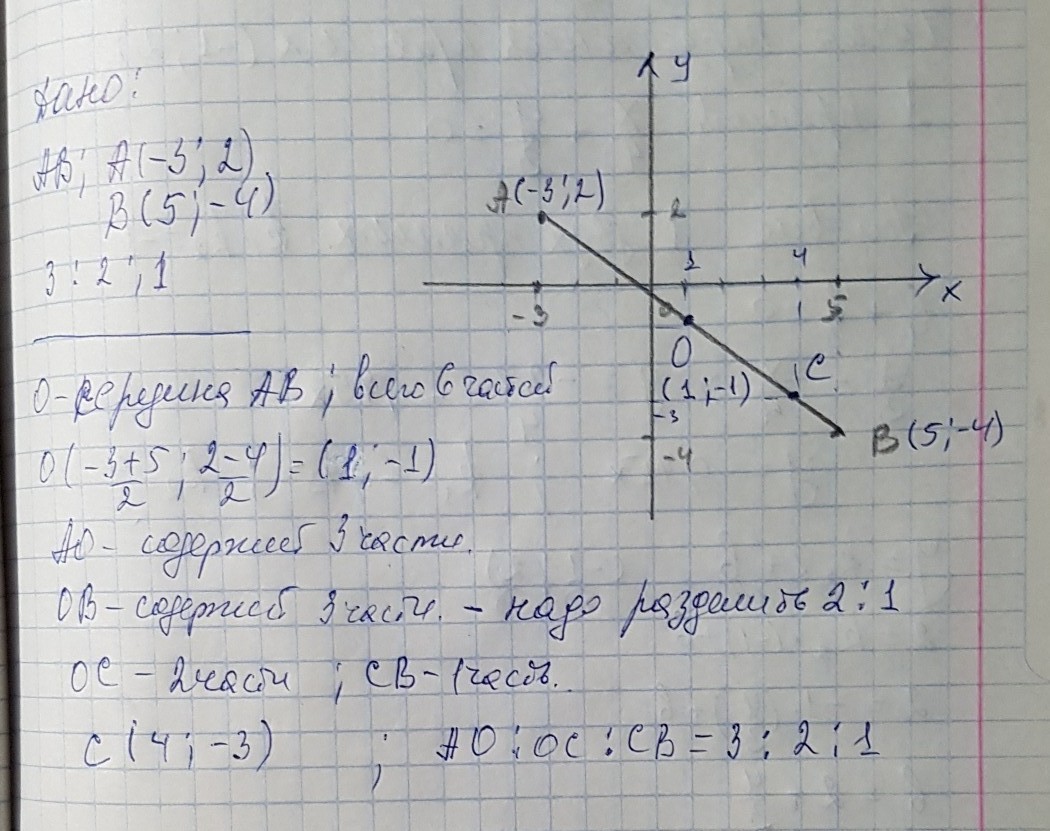 Дано:
AB; A(-3; 2)
B(5; -4)
3 : 2 ; 1
y
A(-3; 2)
2
1
4
x
-3
0
5
O
(1; -1)
C
-3
-4
B(5; -4)
O - середина AB; всего 6 частей
O(-3+5/2; 2-4/2) = (1; -1)
AO - содержит 3 части.
OB - содержит 3 части. - надо разделить 2 : 1
OC - 2 части ; CB - 1 часть.
C(4; -3) ; AO : OC : CB = 3 : 2 : 1